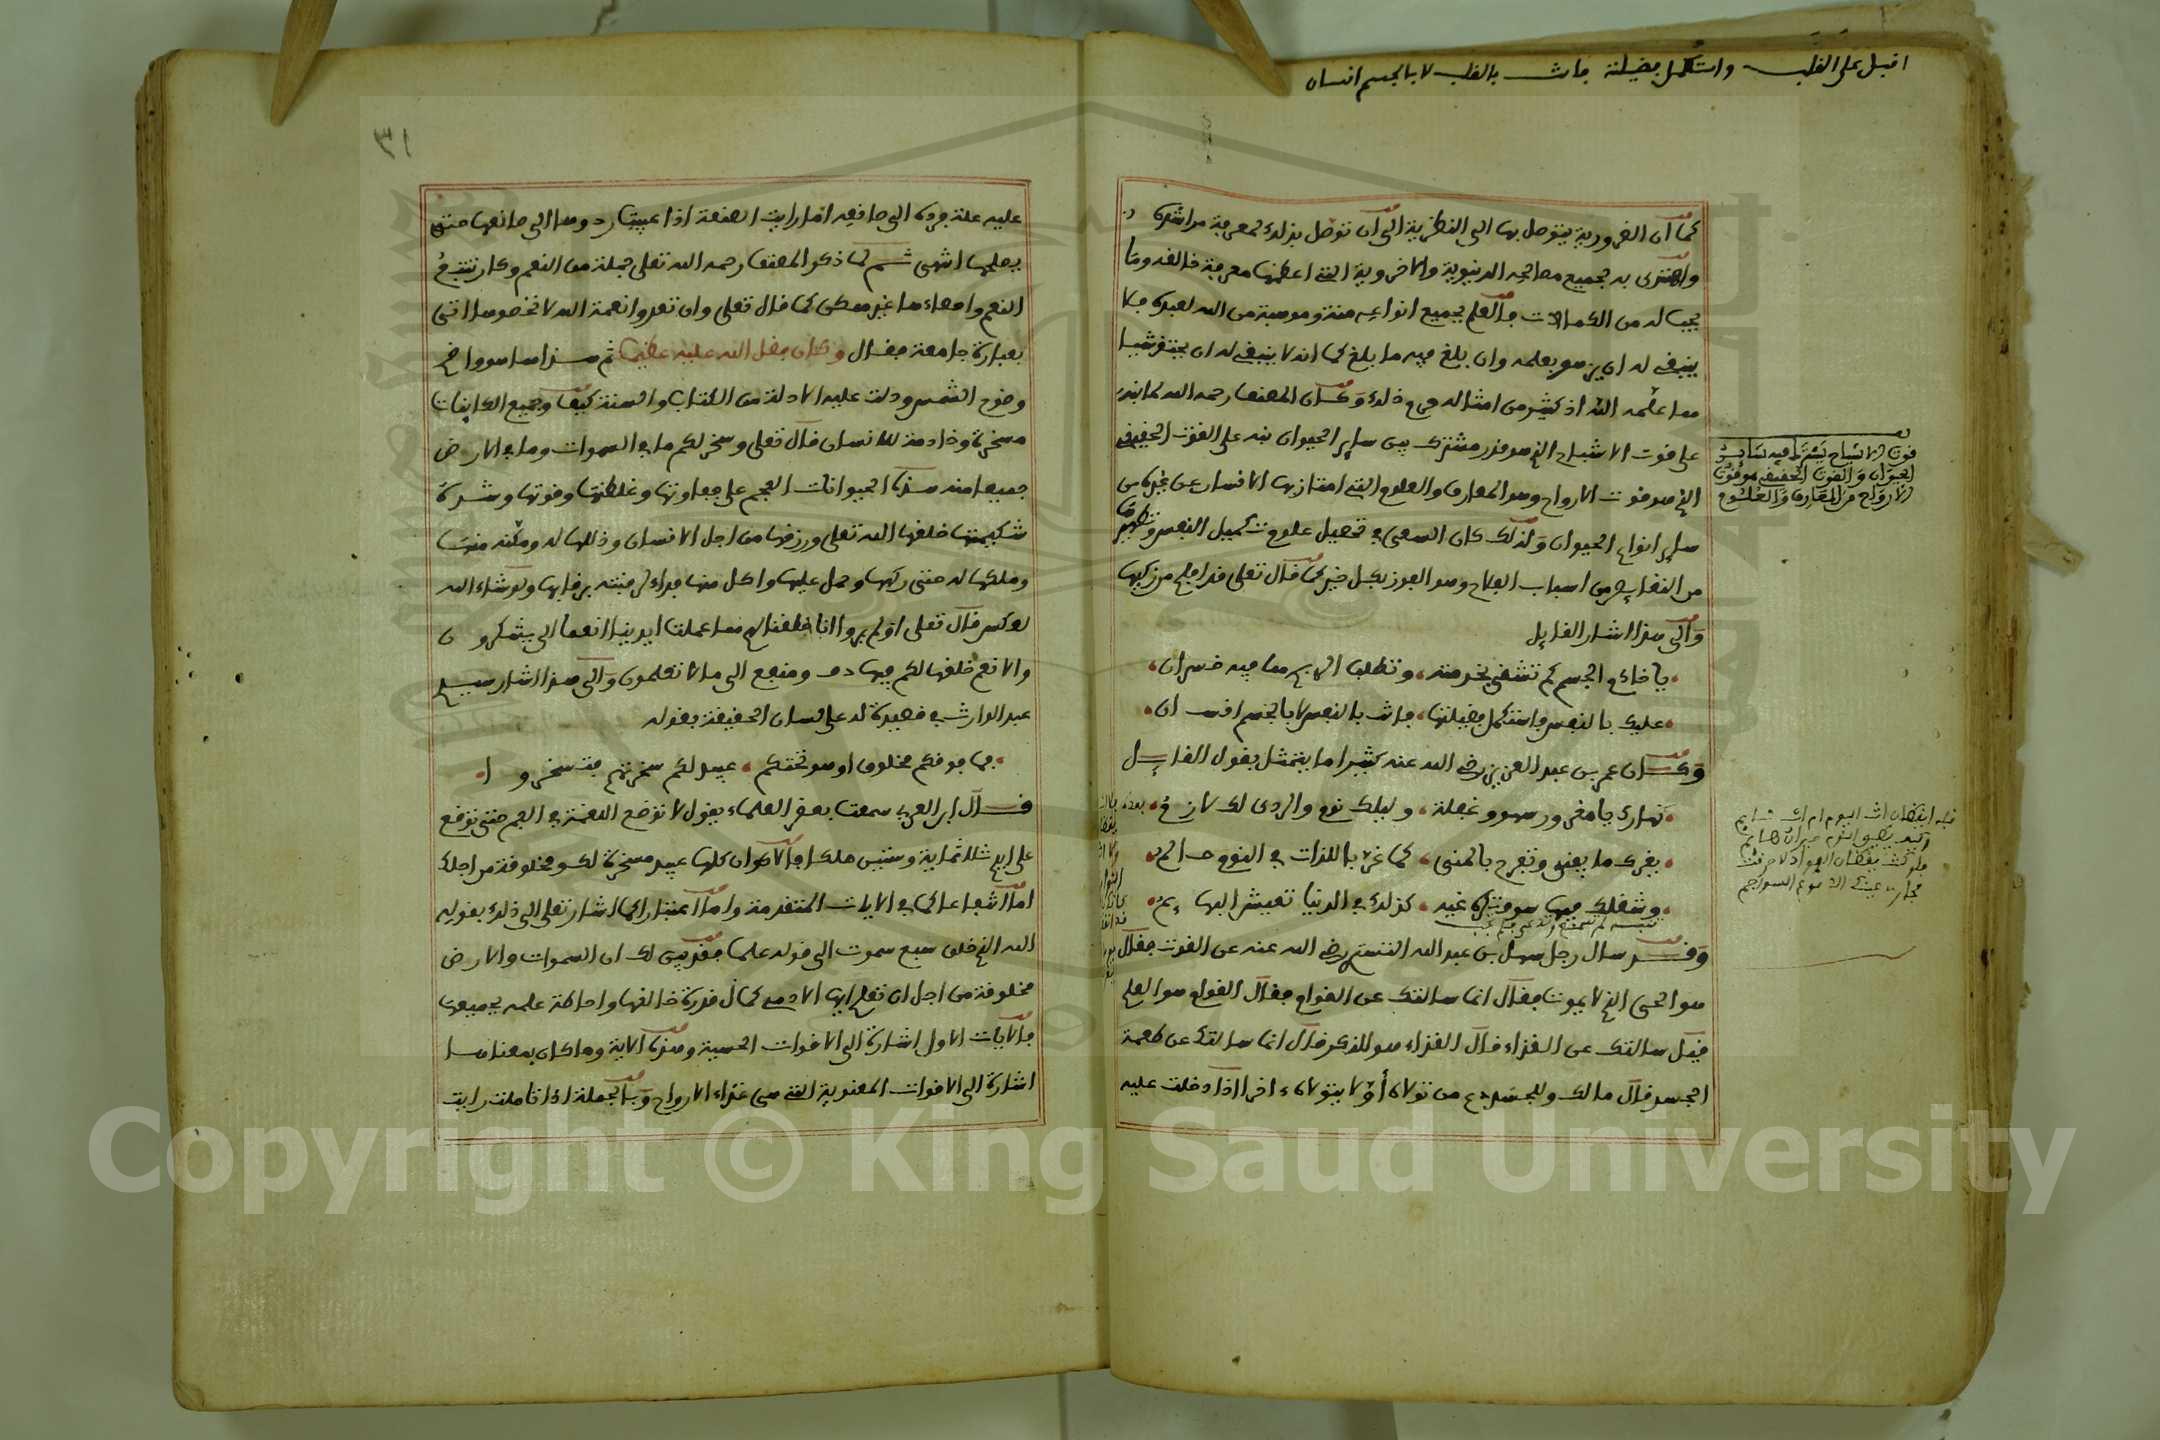 اقبل على القلب واستكمل فضيلته فانت بالقلب لا بالجسم انسان
كما ان الضرورية يتوصل بها الى النظرية الى ان توصل بذلك لمعرفة مراشده
واهتدى به لجميع مصالحه الدنيوية والاخروية التي اعظمها معرفة خالقه وما
يجب له من الكمالات فالعلم بجميع انواعه منة وموهبة من الله لعبده فلا
ينبغي له ان يزهو بعلمه وان بلغ فيه ما بلغ كما انه لا ينبغي له ان يحتقر شيا
مما علمه الله اذ كثير من امثاله حرم ذلك وكان المصنف رحمه الله لما نبه
على قوت الاشباح الذي هو قدر مشترك بين ساير الحيوان نبه على القوت الحقيقي
الذي هو قوت الارواح وهو المعارف والعلوم التي امتاز بها الانسان عن غيره من
ساير انواع الحيوان ولذلك كان السعي في تحصيل علوم تكميل النفس وتطهيرها
من النقايص من اسباب الفلاح وهو الفوز بكل خير كما قال تعلى قد افلح من زكيها
والى هذا اشار القايل
يا خادم الجسم كم تشقى بخدمته وتطلب الربح مما فيه خسران
عليك بالنفس فاستكمل فضيلتها فانت بالنفس لا بالجسم انسان
وكان عمر بن عبد العزيز رضي الله عنه كثيرا ما يتمثل بقول القايل
نهارك يا مغرور سهو وغفلة وليلك نوم والردى لك لازم
يغرك ما يفنى وتفرح بالمنى كما غر باللذات في النوم حالم
وشغلك فيها سوف تكره غبه كذلك في الدنيا تعيش البهايم
وقد سال رجل سهل بن عبد الله التستري رضي الله عنه عن القوت فقال
هو الحي الذي لا يموت فقال انما سالتك عن القوام فقال القوام هو العلم
فقيل سالتك عن الغذاء قال الغذاء هو الذكر قال انما سالتك عن طعمة
الجسد قال ما لك وللجسد دع من تولاه أولا يتولاه ءاخرا اذا دخلت عليه
قوت الاشباح يشترك فيه ساير
الحيوان والقوت الحقيقي هو قوت
الارواح من المعارف والعلوم
٣١
عليه علة فرده الى صانعه اما رايت الصنعة اذا عيبت ردوها الى صانعها حتى
يصلحها انتهى ثم لما ذكر المصنف رحمه الله تعلى جملة من النعم وكان تتبع
النعم واحصاءها غير ممكن كما قال تعلى وان تعدوا نعمة الله لا تحصوها اتى
بعبارة جامعة فقال وكان فضل الله عليه عظيما ثم هذا مما هو واضح
وضوح الشمس ودلت عليه الادلة من الكتاب والسنة كيف وجميع الكاينات
مسخرة وخادمة للانسان قال تعلى وسخر لكم ما في السموات وما في الارض
جميعا منه هذه الحيوانات العجم على تفاوتها وغلظتها وقوتها وشدة
شكيمتها خلقها الله تعلى ورزقها من اجل الانسان وذللها له ومكنه منها
وملكها له حتى ركبها وحمل عليها واكل منها فداء لرقبته برقابها ولو شاء الله
لعكس قال تعلى اولم يروا انا خلقنا لهم مما عملت ايدينا انعما الى يشكرون
والانعم خلقها لكم فيها دف ومنفع الى ما لا تعلمون والى هذا اشار سيدي
عبد الوارث في قصيدة له على لسان الحقيقة بقوله
فما فوقكم مخلوق او هو تحتكم عبيد لكم سخرتهم فتسخروا
قال ابن العربي سمعت بعض العلماء يقول لا توضع اللقمة في الفم حتى توقع
على ايدي ثلثماية وستين ملكا فالاكوان كلها عبيد مسخرة لك ومخلوقة من اجلك
اما انتفاعا كما في الايات المتقدمة واما اعتبارا كما اشار تعلى الى ذلك بقوله
الله الذي خلق سبع سموت الى قوله علما فقد بين لك ان السموات والارض
مخلوقة من اجل ان تعلم ايها الادمي كمال قدرة خالقها واحاطة علمه بجميعها
فالايات الاول اشارة الى الاقوات الحسية وهذه الاية وما كان بمعناها
اشارة الى الاقوات المعنوية التي هي غذاء الارواح وبالجملة اذا تاملت رايت
Copyright © King Saud University